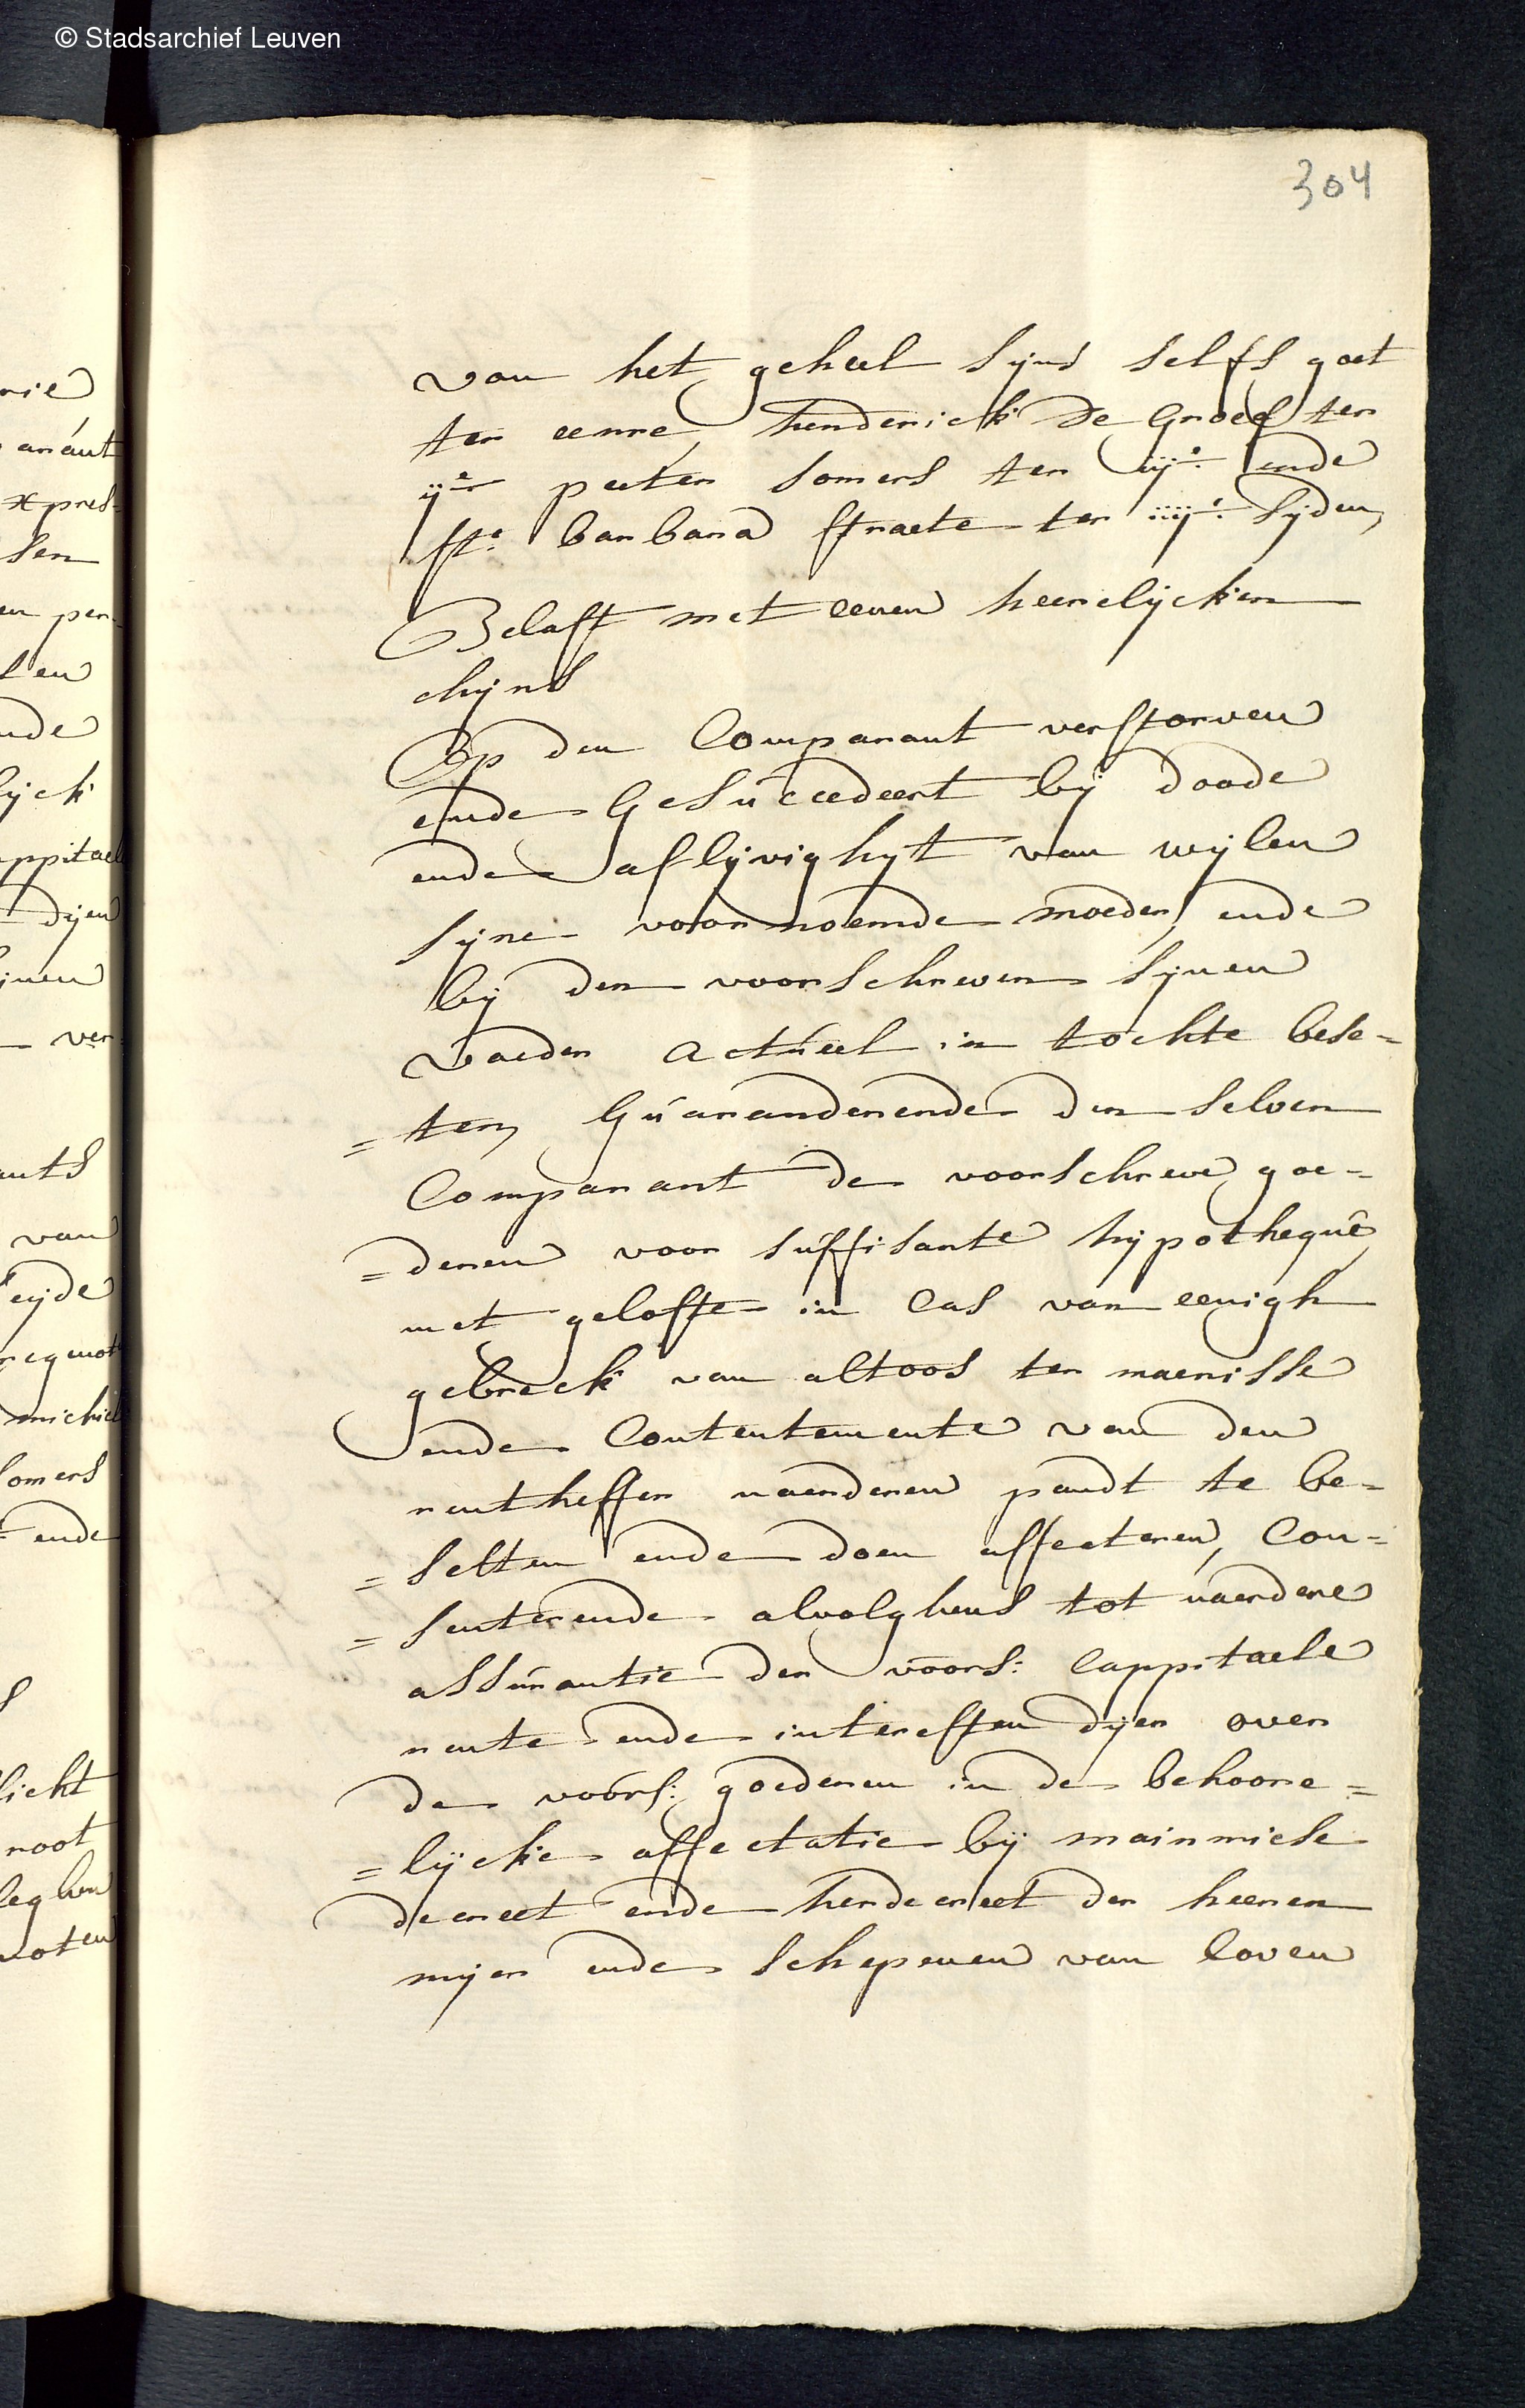 © Stadsarchief Leuven
304
van het geheel sijns selfs goet
ter eenre, henderick De Groef ter
ije peeter somers ter iije ende
ste barbara straete ter iiije sijden,
Belast met eenen heerelijcken
chijns
Op den Comparant verstorven
ende Gesuccedeert bij doode
ende aflijvighijt van wijlen
sijne voornoemde moeder, ende
bij den voorschreven sijnen
vaeder actueel in tochte bese=
=ten, Guaranderende den selven
Comparant de voorschreve goe=
=deren voor suffisante hijpotheque
met gelofte in Cas van eenigh
gebreck van altoos ter maenisse
ende Contentemente van den
rentheffer naerderen pandt te be=
=setten ende doen affecteren, Con=
=senterende alvolghens tot naerdere
assurantie der voors: Cappitaele
rente ende interesten dijer over
de voors: goederen in de behoore=
=lijcke affectatie bij mainmiese
decreet ende herdecreet der heeren
mijer ende schepenen van loven